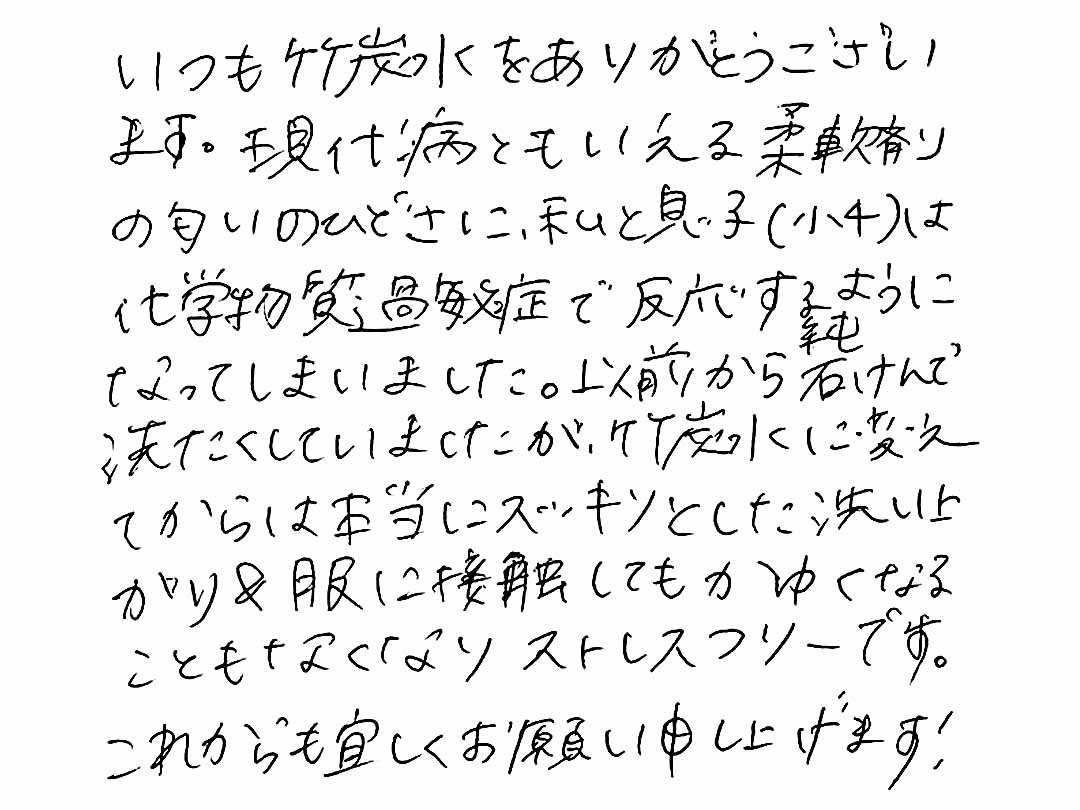 いつも竹炭水をありがとうござい
ます。現代病ともいえる柔軟剤
の匂いのひどさに、私と息子(小4)は
化学物質過敏症で反応するように
なってしまいました。以前から純石けんで
洗たくしていましたが、竹炭水に変え
てからは本当にスッキリとした洗い上
がり&服に接触してもかゆくなる
こともなくなりストレスフリーです。
これからも宜しくお願い申し上げます!